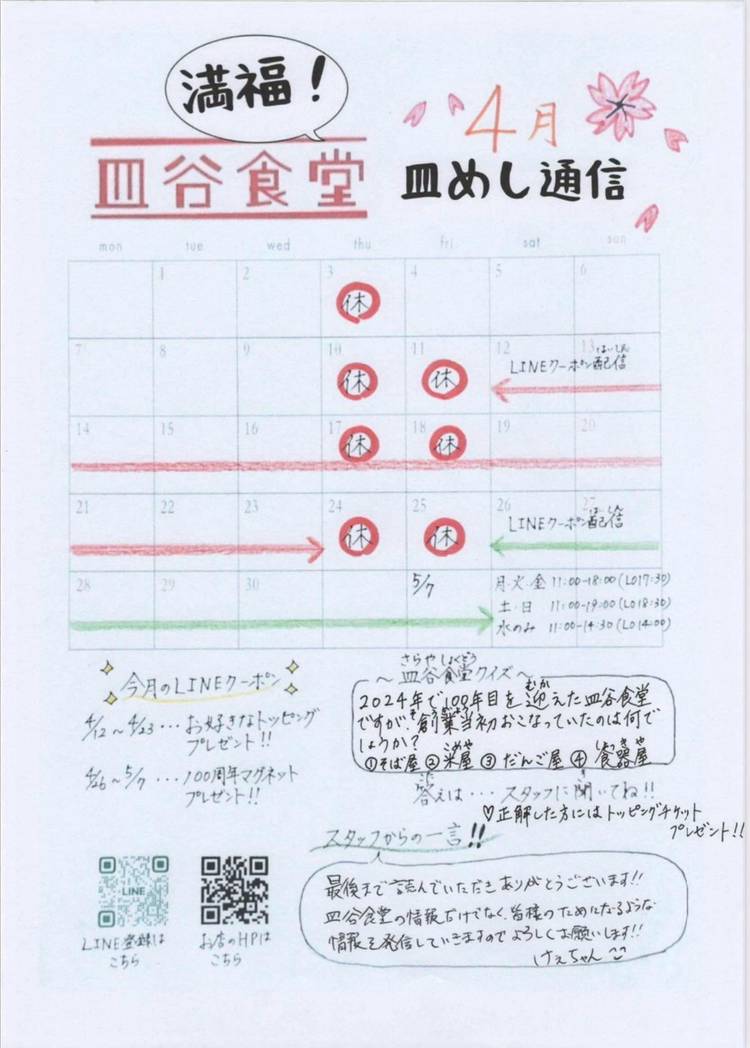 満福！
皿谷食堂
4月
皿めし通信
mon tue wed thu fri sat sun
1 2 3 4 5 6
休
7 8 9 10 11 12 13
はいしん
休 休 LINEクーポン配信
14 15 16 17 18 19 20
休 休
21 22 23 24 25 26 27
はいしん
休 休 LINEクーポン配信
28 29 30 5/7
月・火・金 11:00-18:00(LO17:30)
土・日 11:00-19:00(LO18:30)
水のみ 11:00-14:30(LO14:00)
今月のLINEクーポン
4/12〜4/23・・・お好きなトッピング
プレゼント!!
4/26〜5/7・・・100周年マグネット
プレゼント!!
さらやしょくどう
〜皿谷食堂クイズ〜
むか
2024年で100年目を迎えた皿谷食堂
そうぎょう
ですが、創業当初おこなっていたのは何で
しょうか？
こめや しょっきや
①そば屋 ②米屋 ③だんご屋 ④食器屋
こた き
答えは・・・スタッフに聞いてね!!
♡正解した方にはトッピングチケット
プレゼント!!
スタッフからの一言!!
最後まで読んでいただきありがとうございます!!
皿谷食堂の情報だけでなく、皆様のためになるような
情報を発信していきますのでよろしくお願いします!!
けぇちゃん
LINE
LINE登録は
こちら
お店のHPは
こちら